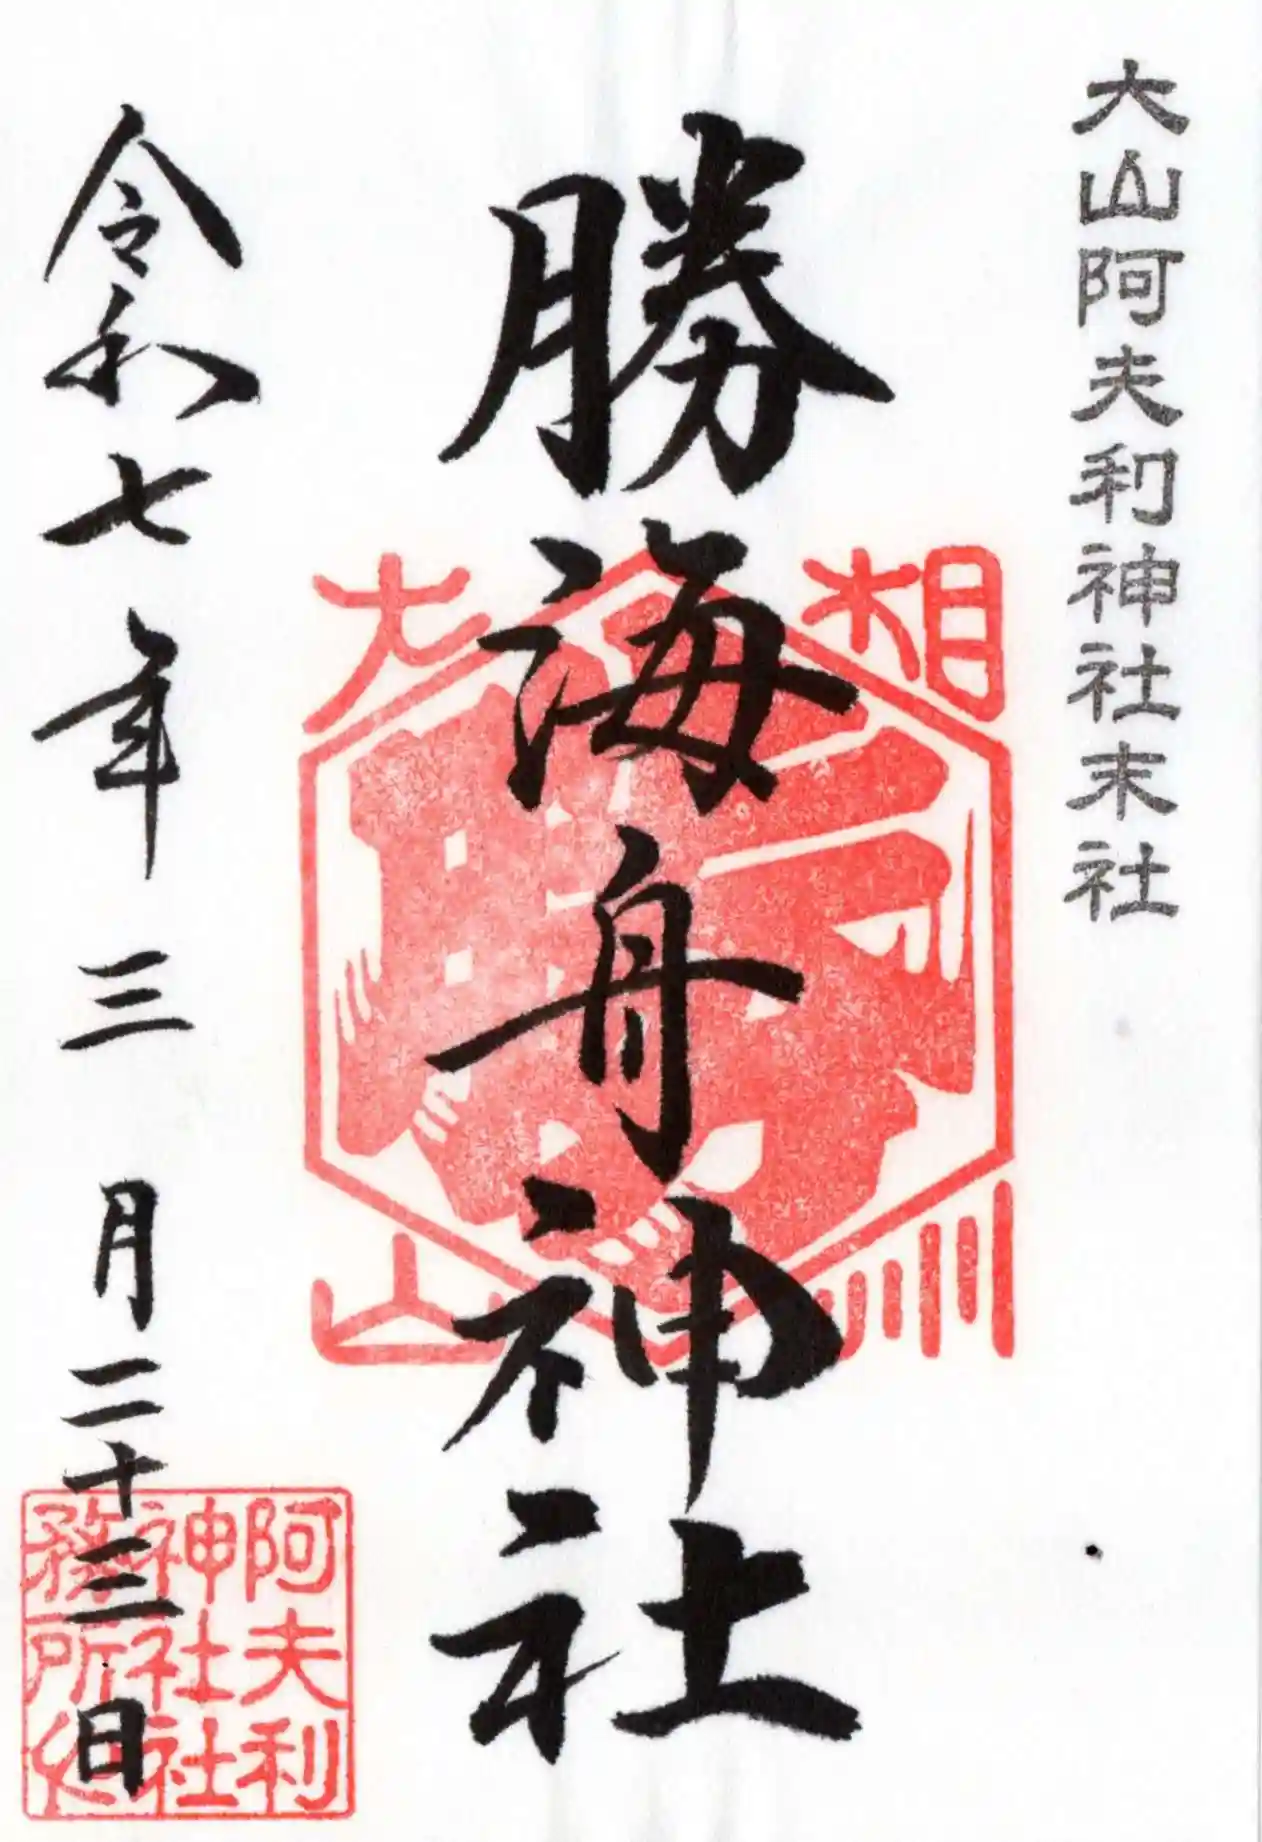 大山阿夫利神社末社
勝海舟神社
相州
大山
令和七年三月二十三日
阿夫利
神社社
務所